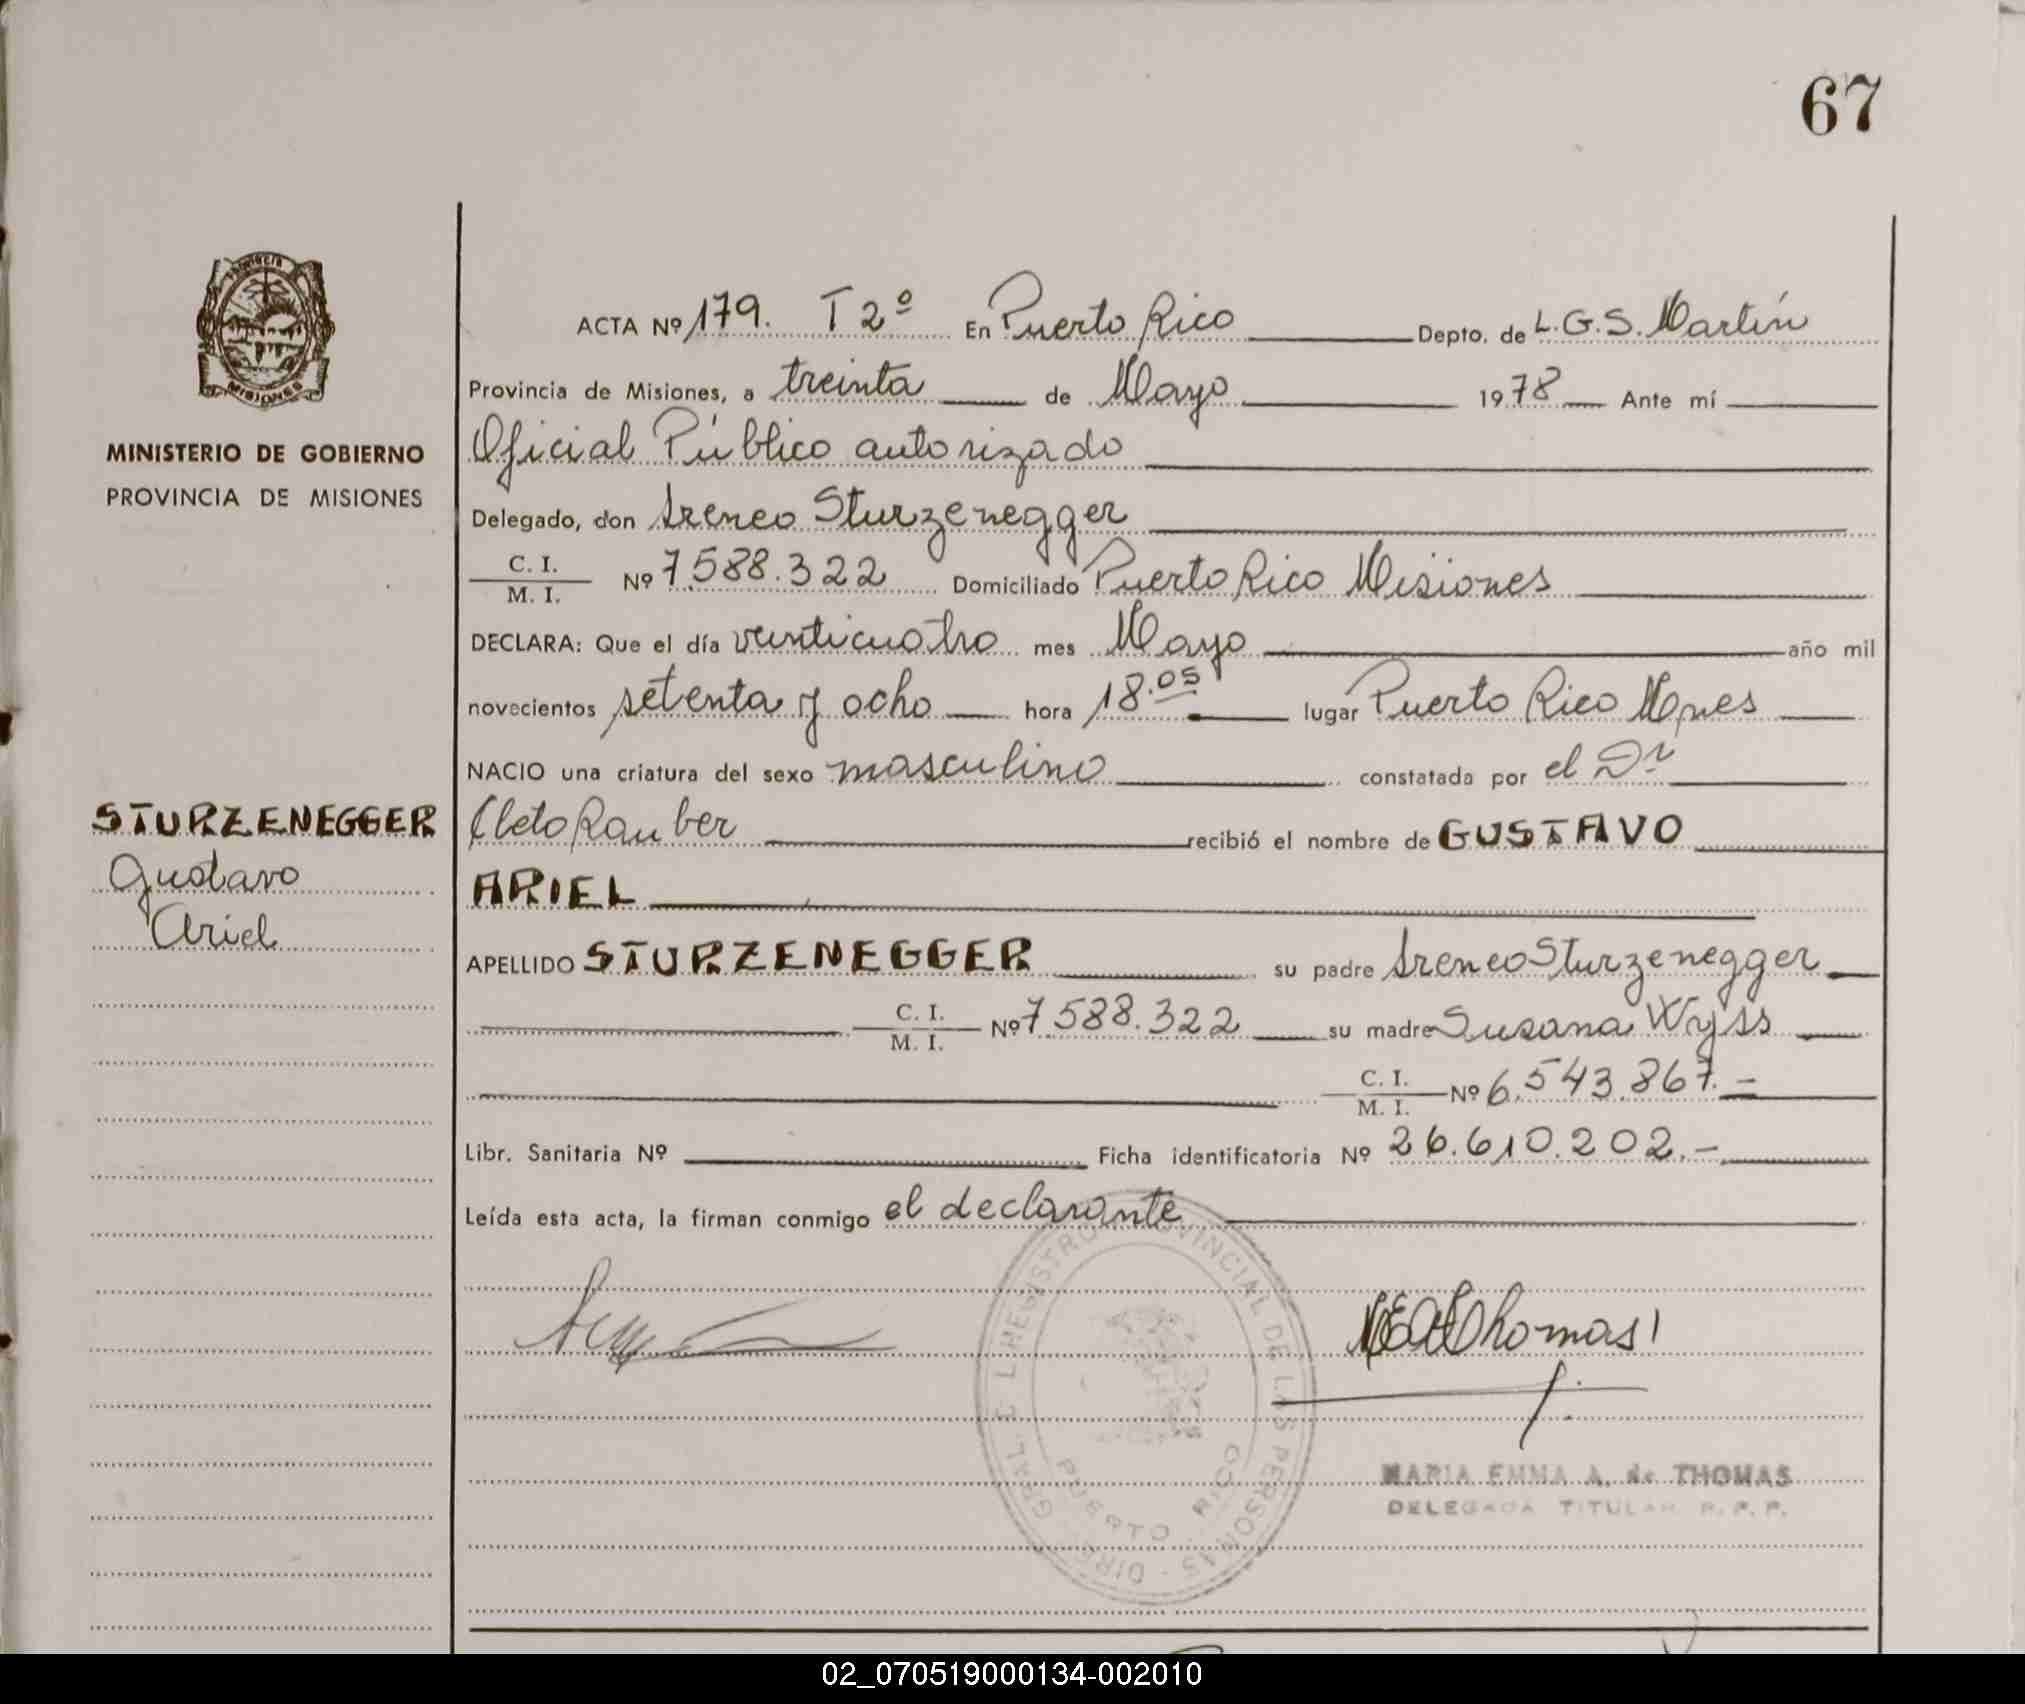 67
ACTA Nº 179. T 2º En Puerto Rico Depto. de L.G.S. Martín
Provincia de Misiones, a treinta de Mayo 1978 Ante mí
MINISTERIO DE GOBIERNO
PROVINCIA DE MISIONES
Oficial Público autorizado
Delegado, don Ireneo Sturzenegger
C. I.
M. I. Nº 7.588.322 Domiciliado Puerto Rico Misiones
DECLARA: Que el día veinticuatro mes Mayo año mil
novecientos setenta y ocho hora 18.05 lugar Puerto Rico Mnes
NACIO una criatura del sexo masculino constatada por el Dr
STURZENEGGER
Gustavo
Ariel
Cleto Rauber recibió el nombre de GUSTAVO
ARIEL
APELLIDO STURZENEGGER su padre Ireneo Sturzenegger
C. I.
M. I. Nº 7.588.322 su madre Susana Wyss
C. I.
M. I. Nº 6.543.867.-
Libr. Sanitaria Nº Ficha identificatoria Nº 26.610.202.-
Leída esta acta, la firman conmigo el declarante
DIREC. GRAL. REGISTRO PROVINCIAL DE LAS PERSONAS
PUERTO RICO
Thomas
MARIA EMMA A. de THOMAS
DELEGADA TITULAR R. P. P.
02_070519000134-002010